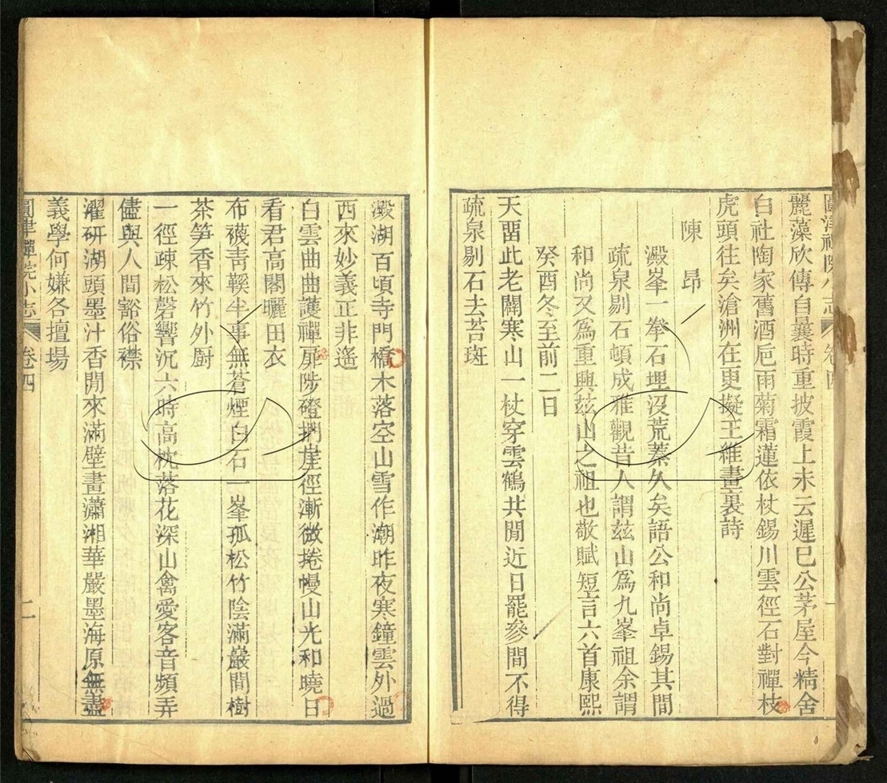 圓津禪院小志 卷四 一
麗藻欣傳自曩時重披霞上未云遲巳公茅屋今精舍
白社陶家舊酒巵雨菊霜蓮依杖錫川雲徑石對禪枝
虎頭往矣滄洲在更擬王維畫裏詩
陳昂
澱峯一拳石埋沒荒蓁久矣語公和尚卓錫其間
疏泉剔石頓成雅觀昔人謂茲山爲九峯祖余謂
和尚又爲重興茲山之祖也敬賦短言六首康熙
癸酉冬至前二日
天畱此老闢寒山一杖穿雲鶴共閒近日罷參間不得
疏泉剔石去苔斑
澱湖百頃寺門橋木落空山雪作潮昨夜寒鐘雲外過
西來妙義正非遙
白雲曲曲護禪扉陟磴捫崖徑漸微捲幔山光和曉日
看君高閣曬田衣
布襪靑鞵半事無蒼煙白石一峯孤松竹陰滿巖間樹
茶笋香來竹外厨
一徑疎松磬響沉六時高枕落花深山禽愛客音頻弄
儘與人間豁俗襟
濯硏湖頭墨汁香閒來滿壁畫瀟湘華嚴墨海原無盡
義學何嫌各擅場
圓津禪院小志 卷四 二